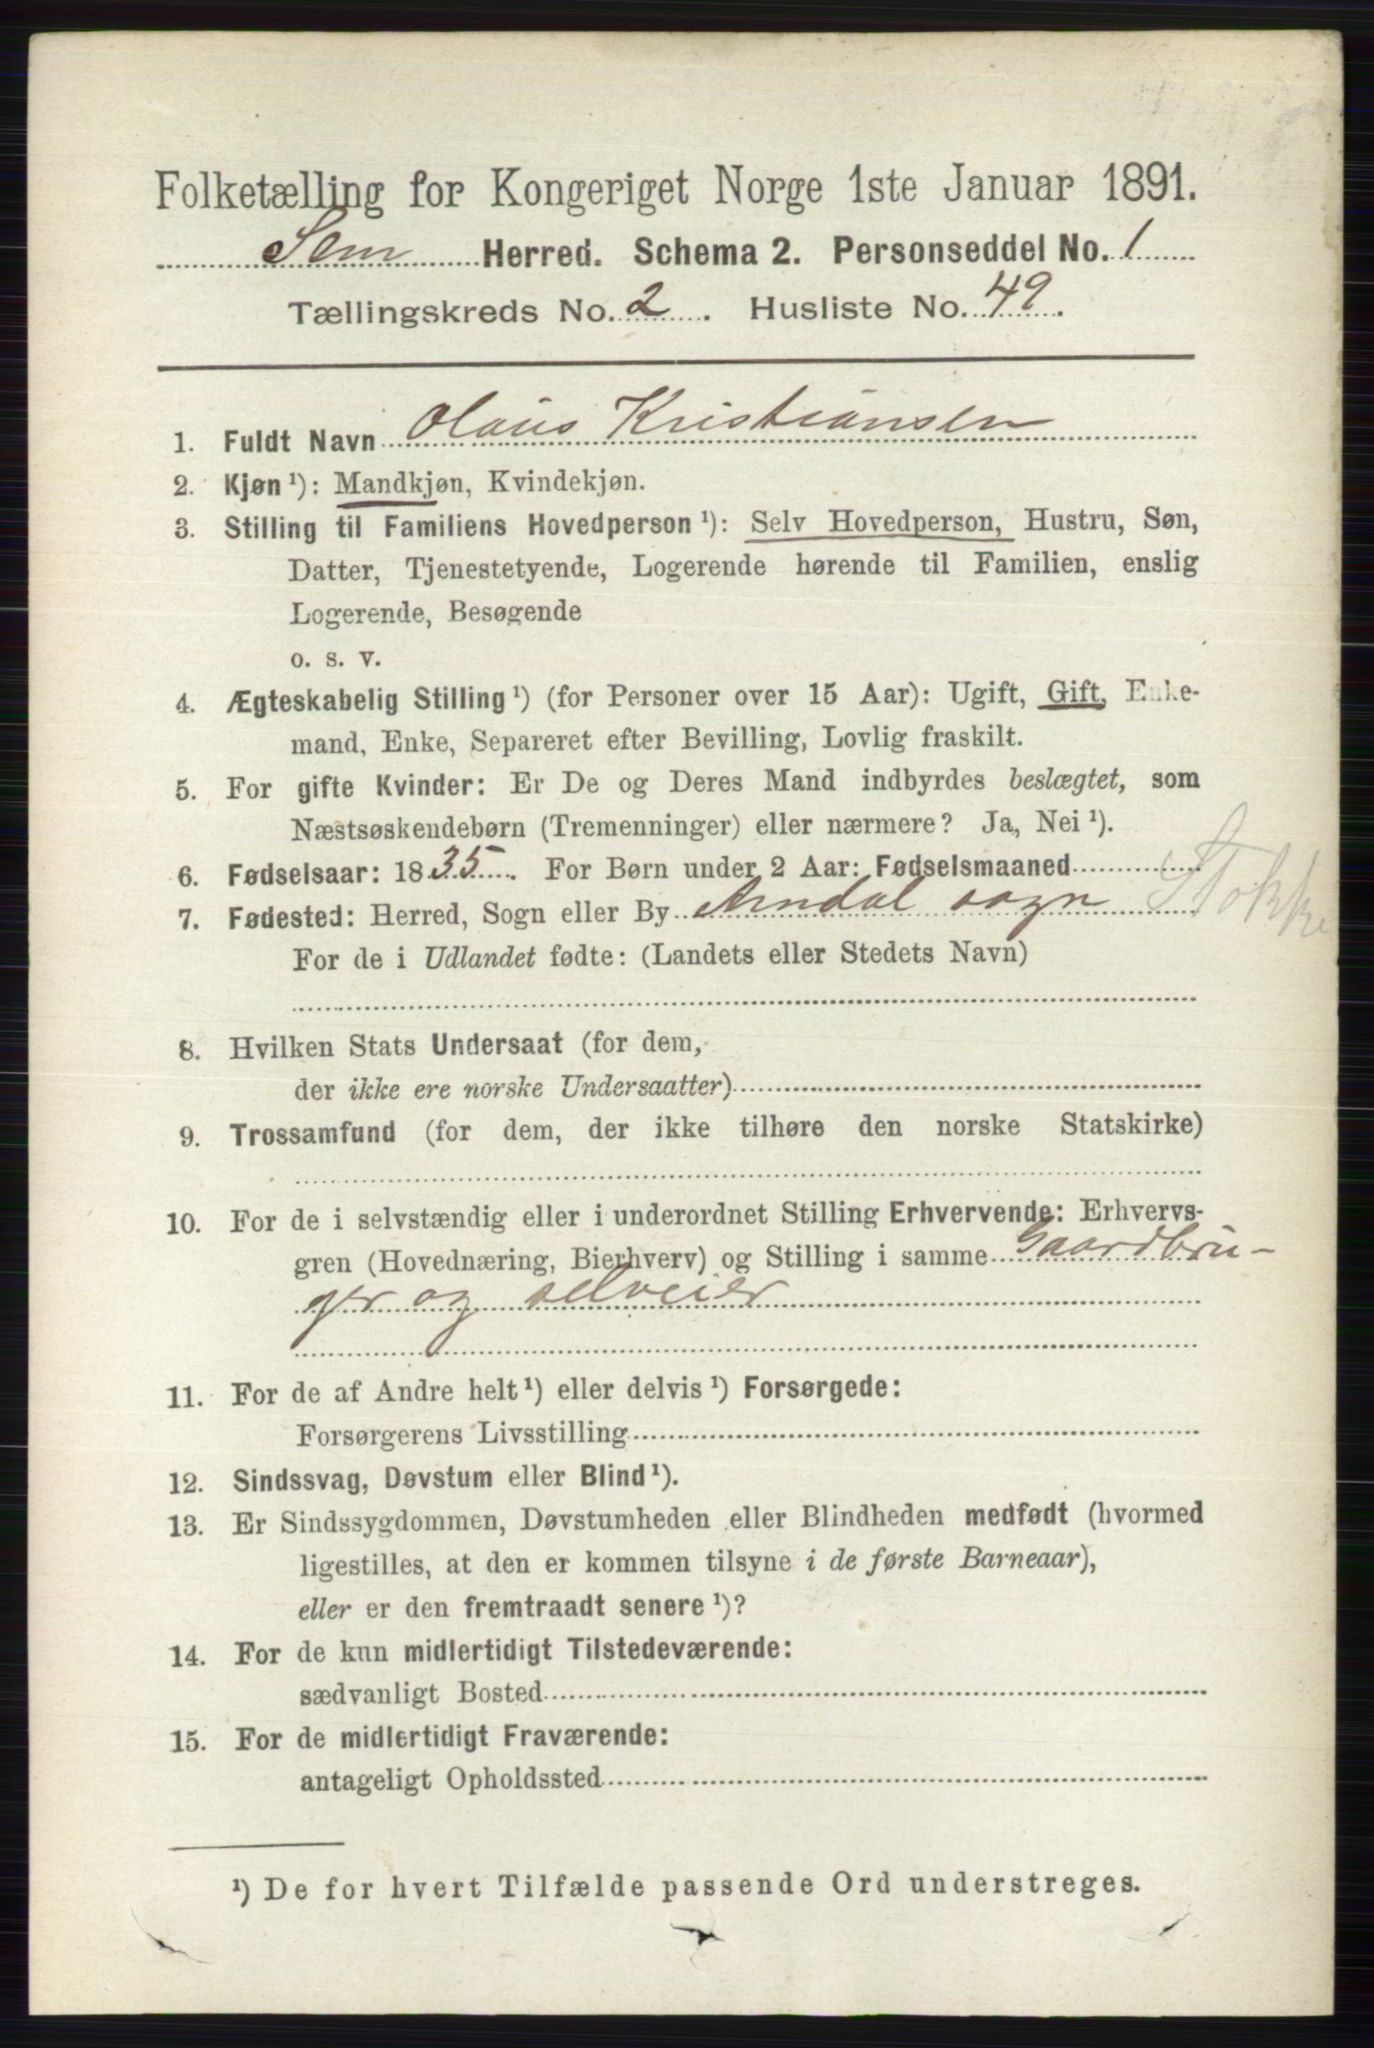 Folketælling for Kongeriget Norge 1ste Januar 1891.
Sem Herred. Schema 2. Personseddel No. 1
Tællingskreds No. 2. Husliste No. 49.
1. Fuldt Navn Olaus Kristiansen
2. Kjøn ¹): Mandkjøn, Kvindekjøn.
3. Stilling til Familiens Hovedperson ¹): Selv Hovedperson, Hustru, Søn,
Datter, Tjenestetyende, Logerende hørende til Familien, enslig
Logerende, Besøgende
o. s. v.
4. Ægteskabelig Stilling ¹) (for Personer over 15 Aar): Ugift, Gift, Enke-
mand, Enke, Separeret efter Bevilling, Lovlig fraskilt.
5. For gifte Kvinder: Er De og Deres Mand indbyrdes beslægtet, som
Næstsøskendebørn (Tremenninger) eller nærmere? Ja, Nei ¹).
6. Fødselsaar: 1835. For Børn under 2 Aar: Fødselsmaaned
7. Fødested: Herred, Sogn eller By Arndal sogn Stokke
For de i Udlandet fødte: (Landets eller Stedets Navn)
8. Hvilken Stats Undersaat (for dem,
der ikke ere norske Undersaatter)
9. Trossamfund (for dem, der ikke tilhøre den norske Statskirke)
10. For de i selvstændig eller i underordnet Stilling Erhvervende: Erhvervs-
gren (Hovednæring, Bierhverv) og Stilling i samme Gaardbru-
ger og selveier
11. For de af Andre helt ¹) eller delvis ¹) Forsørgede:
Forsørgerens Livsstilling
12. Sindssvag, Døvstum eller Blind ¹).
13. Er Sindssygdommen, Døvstumheden eller Blindheden medfødt (hvormed
ligestilles, at den er kommen tilsyne i de første Barneaar),
eller er den fremtraadt senere ¹)?
14. For de kun midlertidigt Tilstedeværende:
sædvanligt Bosted
15. For de midlertidigt Fraværende:
antageligt Opholdssted
¹) De for hvert Tilfælde passende Ord understreges.